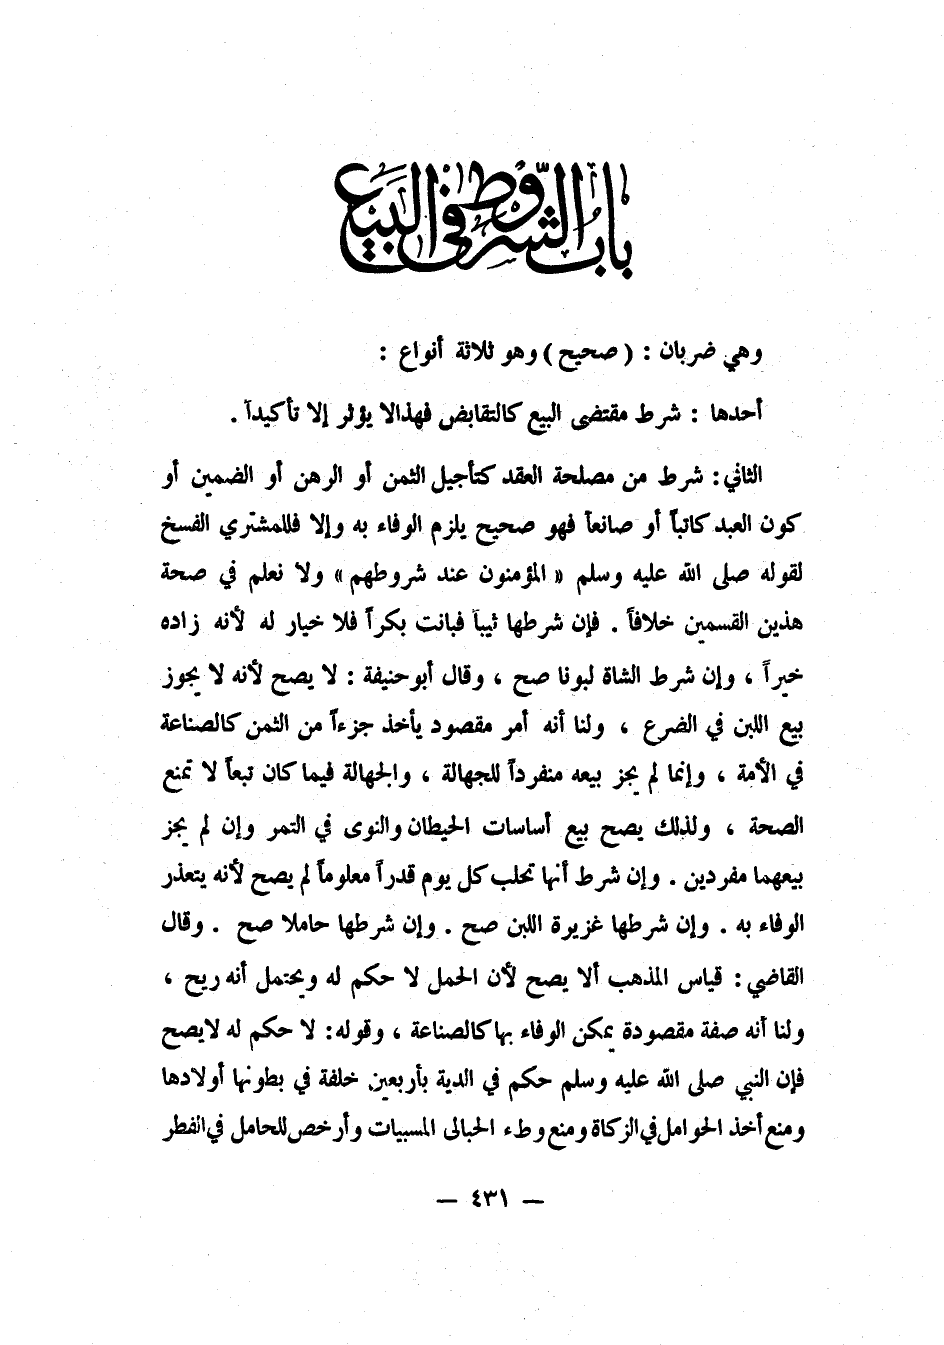 باب الشروط في البيع
وهي ضربان : ( صحيح ) وهو ثلاثة أنواع :
أحدها : شرط مقتضى البيع كالتقابض فهذالا يؤثر إلا تأكيداً .
الثاني : شرط من مصلحة العقد كتأجيل الثمن أو الرهن أو الضمين أو
كون العبد كاتباً أو صانعاً فهو صحيح يلزم الوفاء به وإلا فللمشتري الفسخ
لقوله صلى الله عليه وسلم « المؤمنون عند شروطهم » ولا نعلم في صحة
هذين القسمين خلافاً . فإن شرطها ثيباً فبانت بكراً فلا خيار له لأنه زاده
خيراً ، وإن شرط الشاة لبونا صح ، وقال أبوحنيفة : لا يصح لأنه لا يجوز
بيع اللبن في الضرع ، ولنا أنه أمر مقصود يأخذ جزءاً من الثمن كالصناعة
في الأمة ، وإنما لم يجز بيعه منفرداً للجهالة ، والجهالة فيما كان تبعاً لا تمنع
الصحة ، ولذلك يصح بيع أساسات الحيطان والنوى في التمر وإن لم يجز
بيعهما مفردين . وإن شرط أنها تحلب كل يوم قدراً معلوماً لم يصح لأنه يتعذر
الوفاء به . وإن شرطها غزيرة اللبن صح . وإن شرطها حاملا صح . وقال
القاضي : قياس المذهب ألا يصح لأن الحمل لا حكم له ويحتمل أنه ريح ،
ولنا أنه صفة مقصودة يمكن الوفاء بها كالصناعة ، وقوله : لا حكم له لايصح
فإن النبي صلى الله عليه وسلم حكم في الدية بأربعين خلفة في بطونها أولادها
ومنع أخذ الحوامل في الزكاة ومنع وطء الحبالى المسبيات وأرخص للحامل في الفطر
— ٤٣١ —